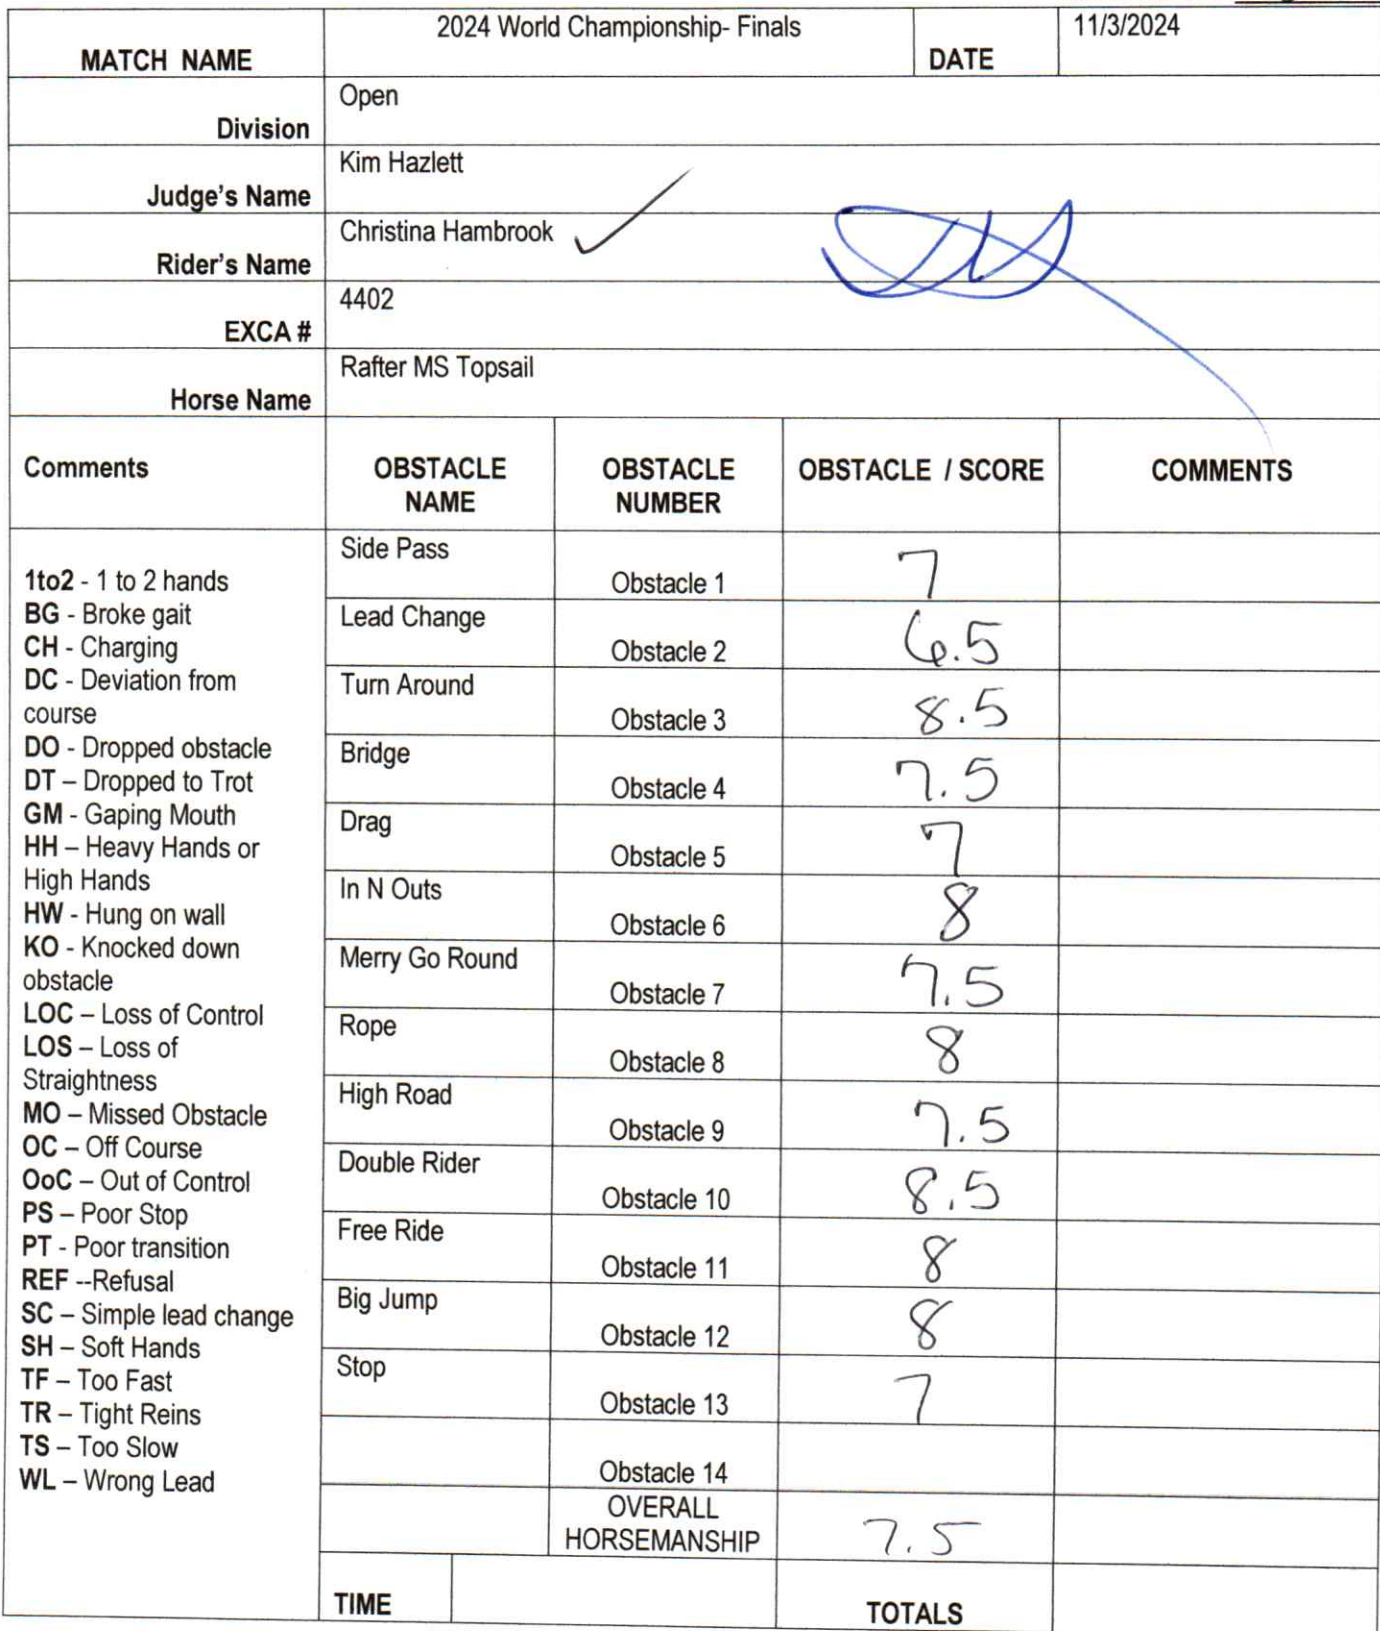 2024 World Championship- Finals
11/3/2024
MATCH NAME
DATE
Open
Division
Kim Hazlett
Judge's Name
Christina Hambrook
Rider's Name
4402
EXCA #
Rafter MS Topsail
Horse Name
Comments
OBSTACLE
NAME
OBSTACLE
NUMBER
OBSTACLE / SCORE
COMMENTS
1to2 - 1 to 2 hands
BG - Broke gait
CH - Charging
DC - Deviation from
course
DO - Dropped obstacle
DT – Dropped to Trot
GM - Gaping Mouth
HH – Heavy Hands or
High Hands
HW - Hung on wall
KO - Knocked down
obstacle
LOC – Loss of Control
LOS – Loss of
Straightness
MO – Missed Obstacle
OC – Off Course
OoC – Out of Control
PS – Poor Stop
PT - Poor transition
REF --Refusal
SC – Simple lead change
SH – Soft Hands
TF – Too Fast
TR – Tight Reins
TS – Too Slow
WL – Wrong Lead
Side Pass
Obstacle 1
7
Lead Change
Obstacle 2
6.5
Turn Around
Obstacle 3
8.5
Bridge
Obstacle 4
7.5
Drag
Obstacle 5
7
In N Outs
Obstacle 6
8
Merry Go Round
Obstacle 7
7.5
Rope
Obstacle 8
8
High Road
Obstacle 9
7.5
Double Rider
Obstacle 10
8.5
Free Ride
Obstacle 11
8
Big Jump
Obstacle 12
8
Stop
Obstacle 13
7
Obstacle 14
OVERALL
HORSEMANSHIP
7.5
TIME
TOTALS